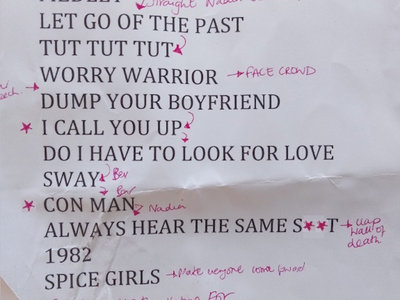 MEDLEY Straight
LET GO OF THE PAST
TUT TUT TUT
WORRY WARRIOR → FACE CROWD
DUMP YOUR BOYFRIEND
★ I CALL YOU UP
DO I HAVE TO LOOK FOR LOVE
SWAY Bev
Bev
★ CON MAN Nadia
ALWAYS HEAR THE SAME S★★T → clap
wall of
death
1982
SPICE GIRLS → Make everyone come forward
FOR